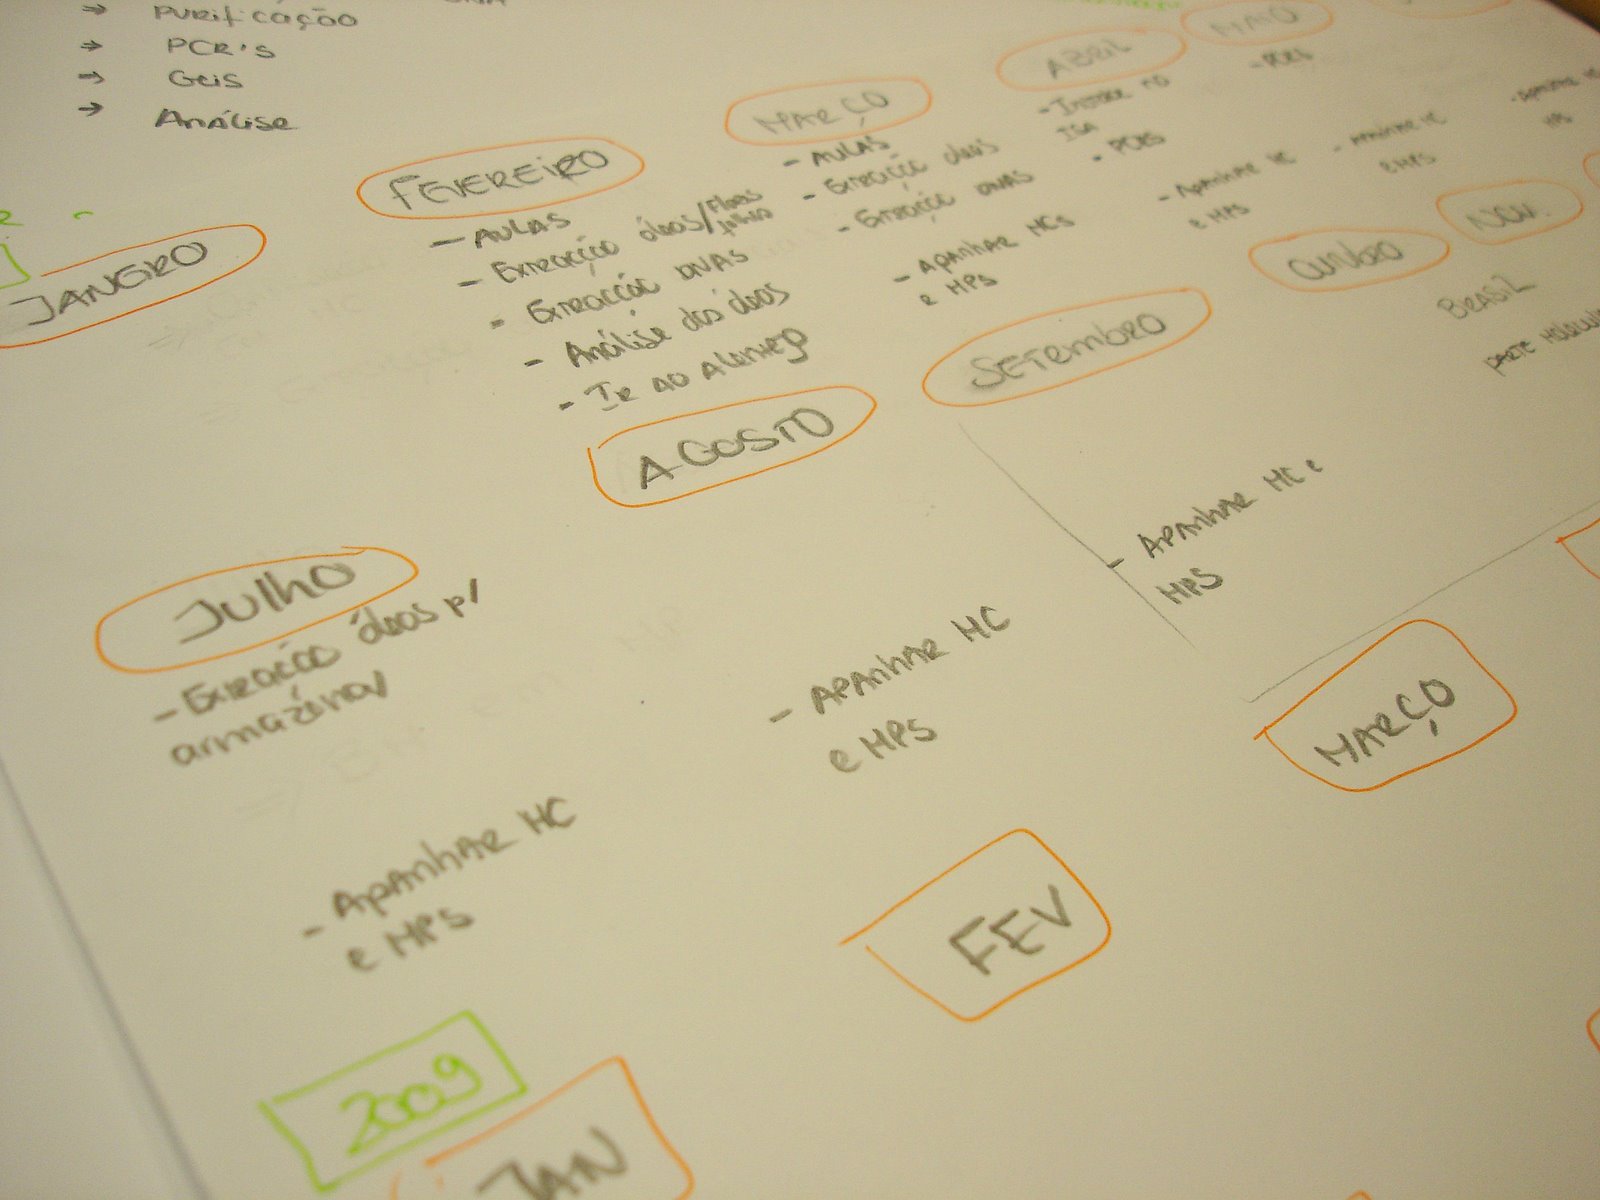 Purificação
PCR's
Geis
Análise
JANEIRO
FEVEREIRO
- AULAS
- Extracção óleos/Flores
folhas
- Extracção DNAS
- Análise dos óleos
- Ir ao Alentejo
MARÇO
- AULAS
- Extracção óleos
- Extracção DNAS
- APANHAR HCs
e HPS
ABRIL
- PCRS
- APANHAR HC
e HPS
MAIO
- PCRS
- APANHAR HC
e HPS
- APANHAR HC
HPS
Julho
- Extracção óleos p/
armazenar
- APANHAR HC
e HPS
AGOSTO
- APANHAR HC
e HPS
SETEMBRO
- APANHAR HC e
HPS
OUTUBRO
NOV.
BRASIL
PARTE
2009
JAN
FEV
MARÇO